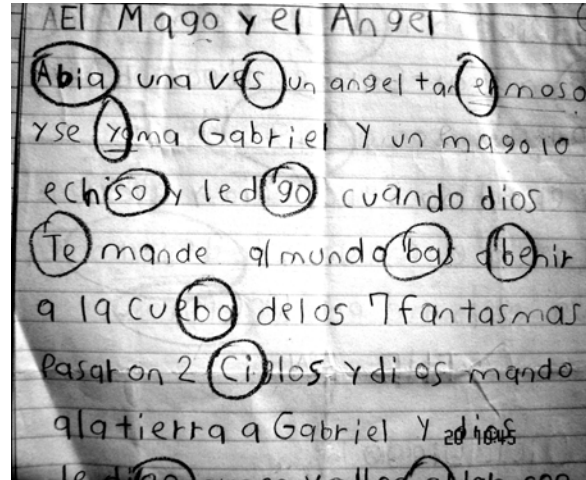 El Mago y el Angel
Abia una ves un angel tan ermoso
y se yama Gabriel y un mago lo
echiso y led go cuando dios
Te mande al mundo bas a benir
a la cueba delos 7 fantasmas
Pasaron 2 Ciglos y dios mando
ala tierra a Gabriel y dios